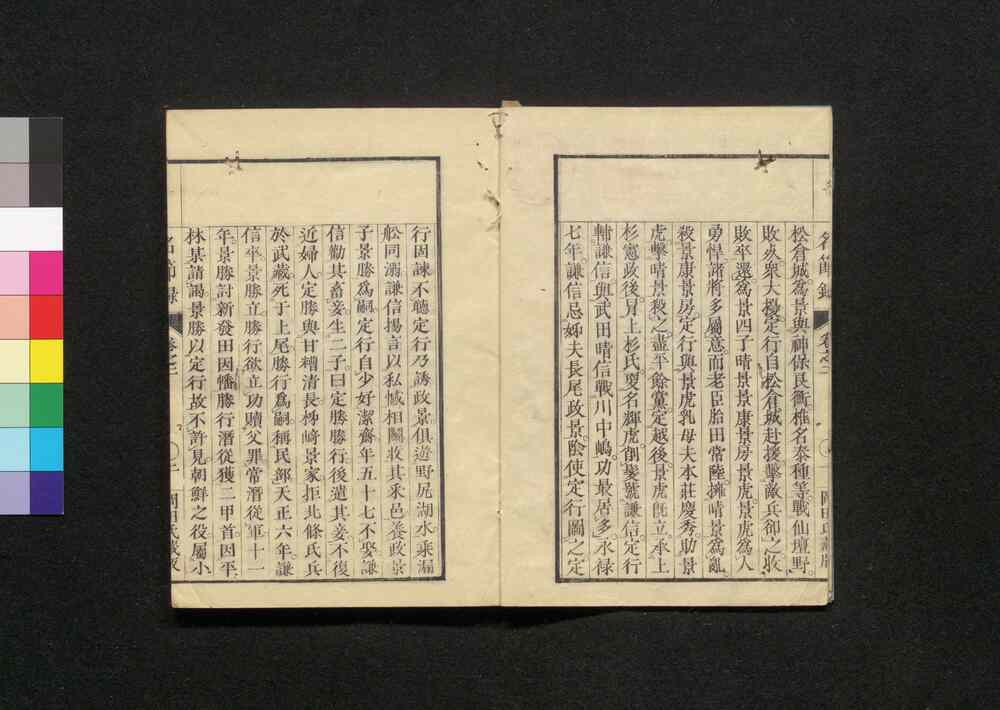 松倉城爲景與神保良衡椎名泰種等戰仙壇野
敗死衆大擾定行自松倉城赴援擊敵兵卻之收
敗卒還爲景四子晴景景康景房景虎景虎爲人
勇悍諸將多屬意而老臣胎田常陸擁晴景爲亂
殺景康景房定行與景虎乳母夫本莊慶秀助景
虎擊晴景殺之盡平餘黨定越後景虎旣立承上
杉憲政後冐上杉氏更名輝虎削髮號謙信定行
輔謙信與武田晴信戰川中嶋功最居多永祿
七年謙信忌姊夫長尾政景陰使定行圖之定
行固諫不聽定行乃誘政景俱遊野尻湖水乘漏
舩同溺謙信揚言以私憾相鬭收其釆邑養政景
子景勝爲嗣定行自少好潔齋年五十七不娶謙
信勸其畜妾生二子曰定勝勝行後遣其妾不復
近婦人定勝與甘糟清長栁﨑景家拒北條氏兵
於武藏死于上尾勝行爲嗣稱民部天正六年謙
信卒景勝立勝行欲立功贖父罪常潛從軍十一
年景勝討新發田因幡勝行潛從獲二甲首因平
林某請謁景勝以定行故不許見朝鮮之役屬小
名節錄
卷之二